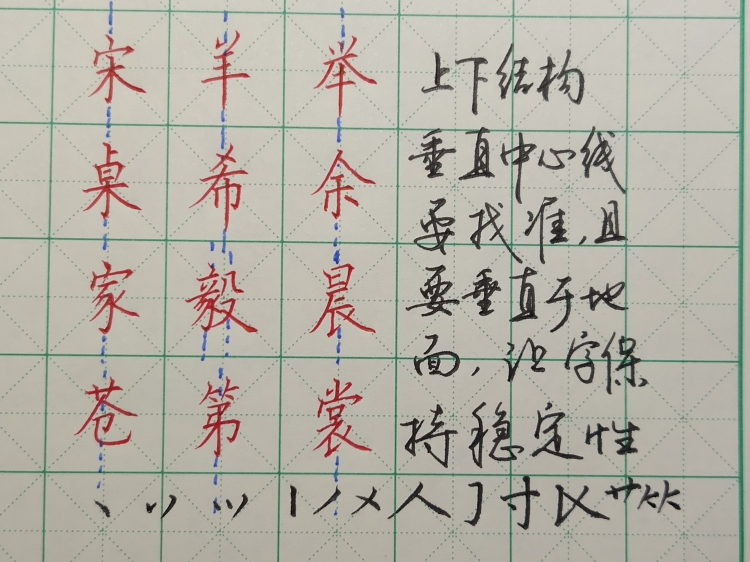 宋 羊 举 上下结构
桌 希 余 垂直中心线
要找准,且
家 毅 晨 要垂直于地
面,让字保
苍 第 裳 持稳定性
丶 丷 ⺌ 丨 丿 乂 人 亅 寸 艹 ⺮